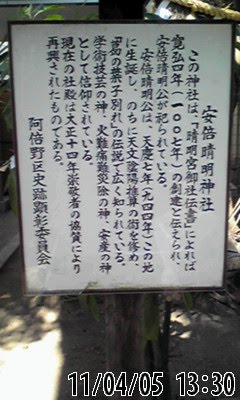 安倍晴明神社
この神社は、『晴明宮御社伝書』によれば
寛弘四年(一〇〇七年)の創建と伝えられ、
安倍晴明公が祀られている。
安倍晴明公は、天慶七年(九四四年)この地
に生誕し、のちに天文陰陽推算の術を修め、
「葛の葉子別れ」の伝説で広く知られている。
学術技芸の神、火難痛難災除の神、安産の神
として信仰されている。
現在の社殿は大正十四年崇敬者の協賛により
再興されたものである。
阿倍野区史跡顕彰委員会
11/04/05 13:30